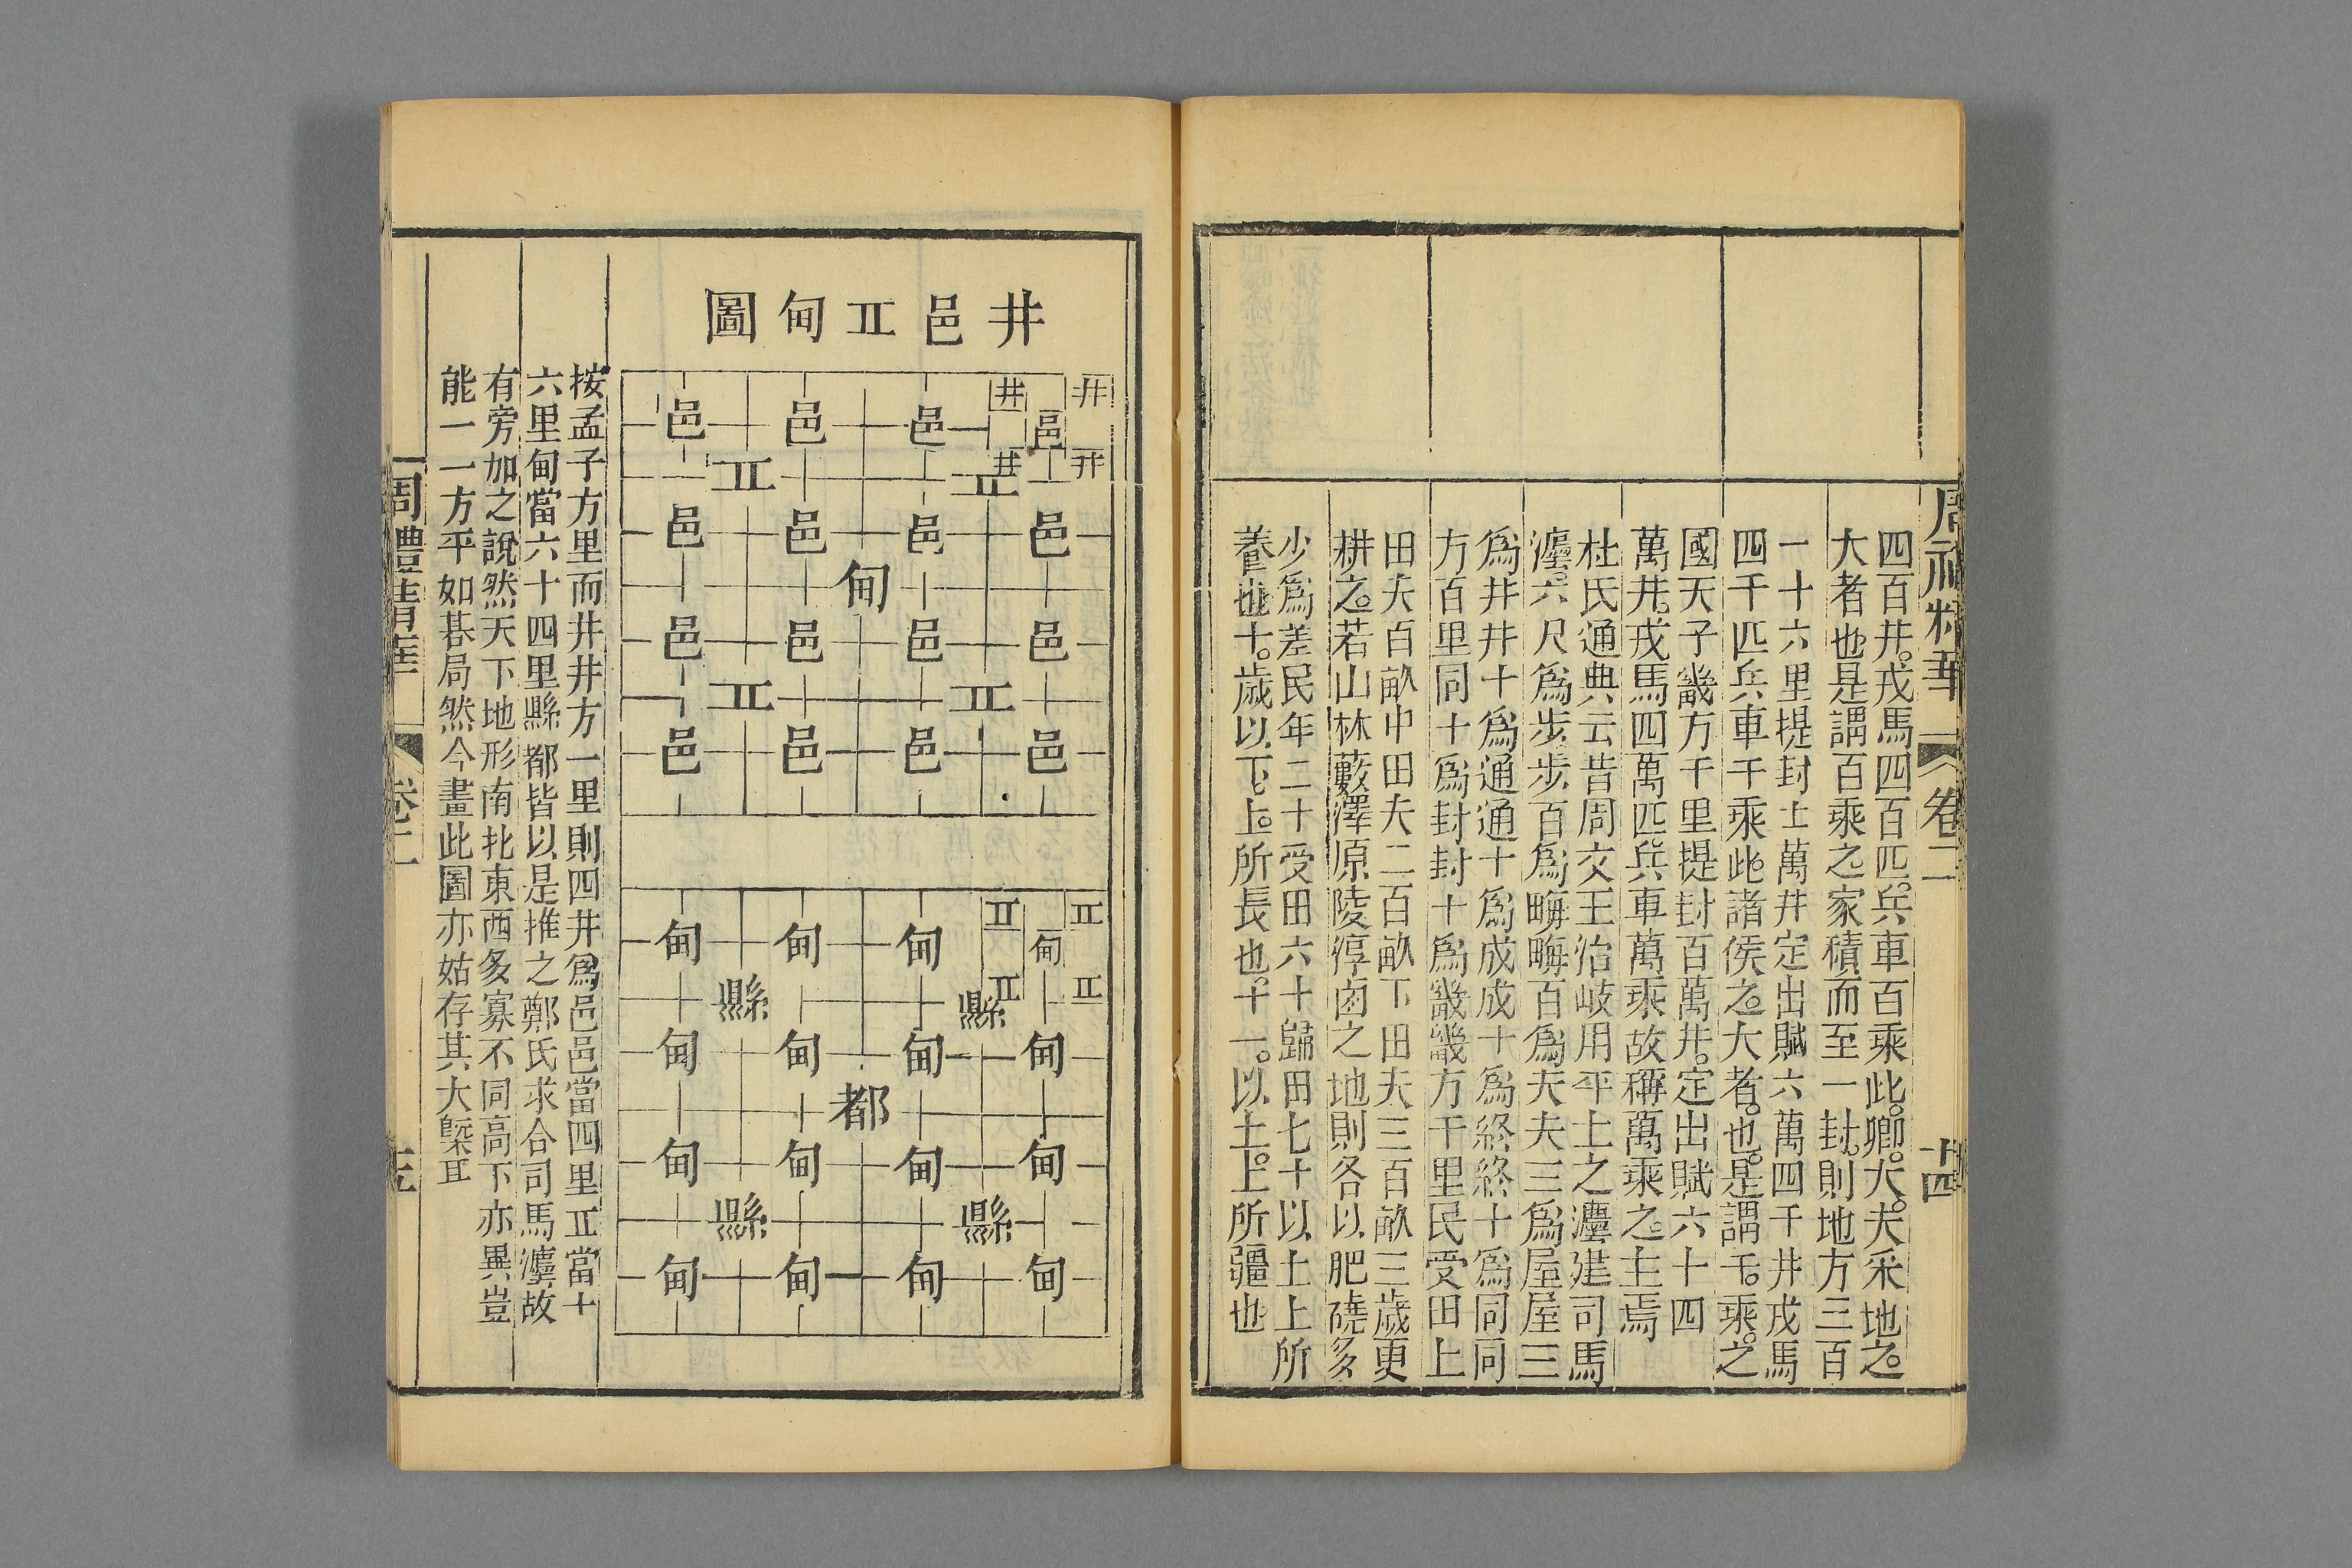 周禮精華
卷二
十四
四百井。戎馬四百匹。兵車百乘此。卿。大。夫采地之。
大者也是謂百乘之。家積而至一封。則地方三百
一十六里提封十萬井定出賦六萬四千井戎馬
四千匹兵車千乘此。諸侯之。大者。也。是謂千。乘。之
國天子畿方千里提封百萬井。定出賦六十四
萬井。戎馬四萬匹。兵車萬乘故稱萬乘之。主焉
杜氏通典云昔周文王治岐用平土之灋建司馬
灋。六尺爲步步百爲畮畮百爲夫夫三爲屋屋三
爲井井十爲通通十爲成成十爲終終十爲同同
方百里同十爲封封十爲畿畿方千里民受田上
田夫百畝中田夫二百畝下田夫三百畝三歲更
耕之。若山林藪澤原陵淳鹵之地則各以肥磽多
少爲差民年二十受田六十歸田七十以上上所
養也。十。歲以下。上。所長也。十一。以上。上所彊也
井邑丘甸圖
井 井
邑 邑 邑 邑
井 井
丘 丘
邑 邑 邑 邑
甸
邑 邑 邑 邑
丘 丘
邑 邑 邑 邑
丘 丘
甸 甸 甸 甸
丘 丘
縣 縣
甸 甸 甸 甸
都
甸 甸 甸 甸
縣 縣
甸 甸 甸 甸
按孟子方里而井井方一里則四井爲邑邑當四里丘當十
六里甸當六十四里縣都皆以是推之鄭氏求合司馬灋故
有旁加之說然天下地形南北東西多寡不同高下亦異豈
能一一方平如棊局然今畫此圖亦姑存其大槩耳
周禮精華
卷二